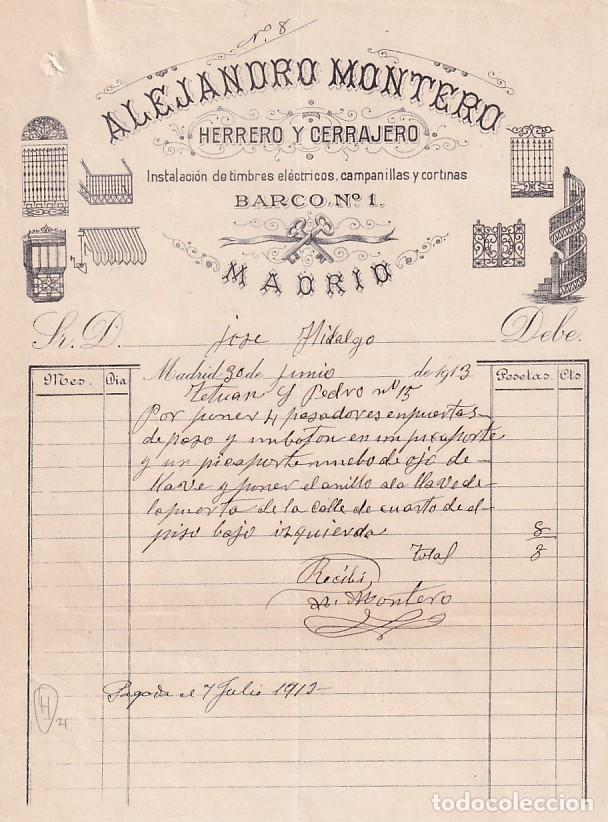 Nº 8
ALEJANDRO MONTERO
HERRERO Y CERRAJERO
Instalación de timbres eléctricos, campanillas y cortinas
BARCO, Nº 1.
MADRID
Sr. D. Jose Hidalgo Debe.
Mes. Dia Madrid 30 de Junio de 1913 Pesetas. Cts
Tetuan S Pedro nº 15
Por poner 4 pasadores en puertas
de paso y un boton en un picaporte
y un picaporte nuebo de ojo de
llave y poner el anillo ala llave de
la puerta de la calle de cuarto de el
piso bajo izquierda 8
Total 8
Recibi,
Montero
Pagada el 7 Julio 1913
H
todocoleccion
todocoleccion.net